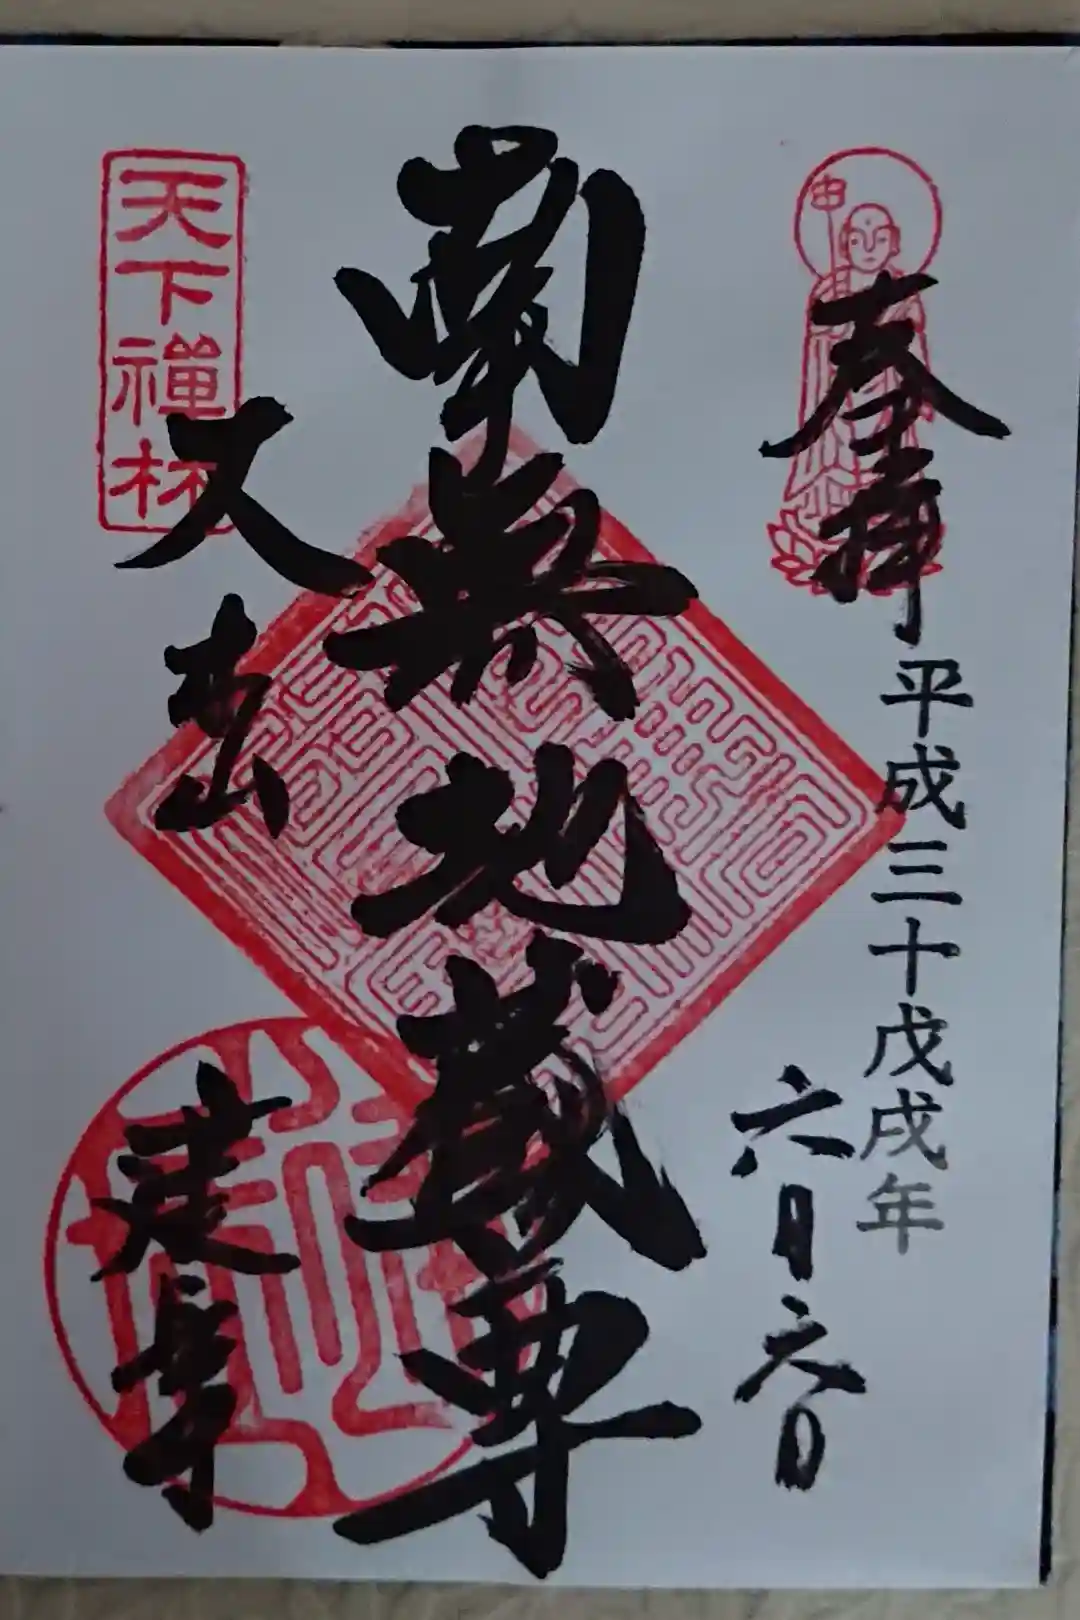 奉拝
平成三十戊戌年
六月六日
南無地蔵尊
天下禪林
大本山
建長寺